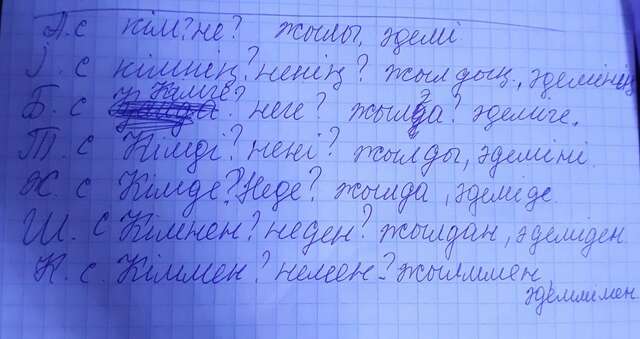 А. с кім? не? жылы, әдемі
І. с кімнің? ненің? жылдың, әдемінің
Б. с Кімге? неге? жылға? әдеміге.
Т. с Кімді? нені? жылды, әдеміні.
Ж. с Кімде? Неде? жылда, әдеміде.
Ш. с Кімнен? неден? жылдан, әдеміден.
К. с. Кіммен? немен? жылммен,
әдеммімен